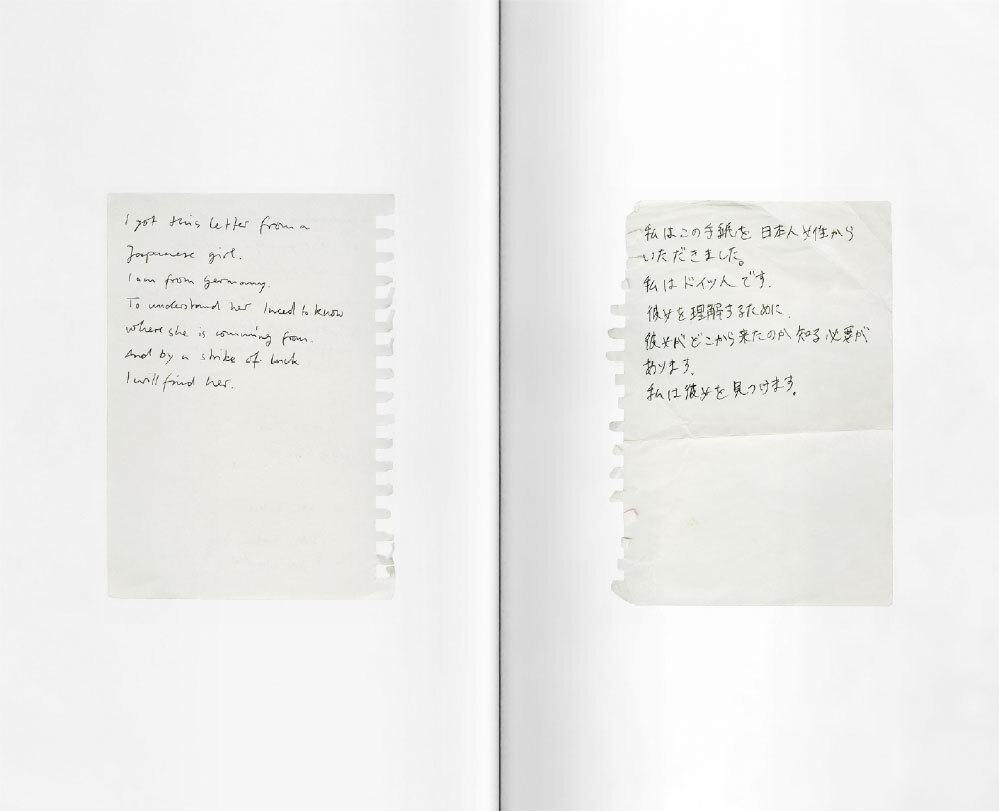 I got this letter from a
Japanese girl.
I am from Germany.
To understand her I need to know
where she is comming from.
And by a strike of luck
I will find her.
私はこの手紙を日本人女性から
いただきました。
私はドイツ人です.
彼女を理解するために.
彼女がどこから来たのか知る必要が
あります.
私は彼女を見つけます。